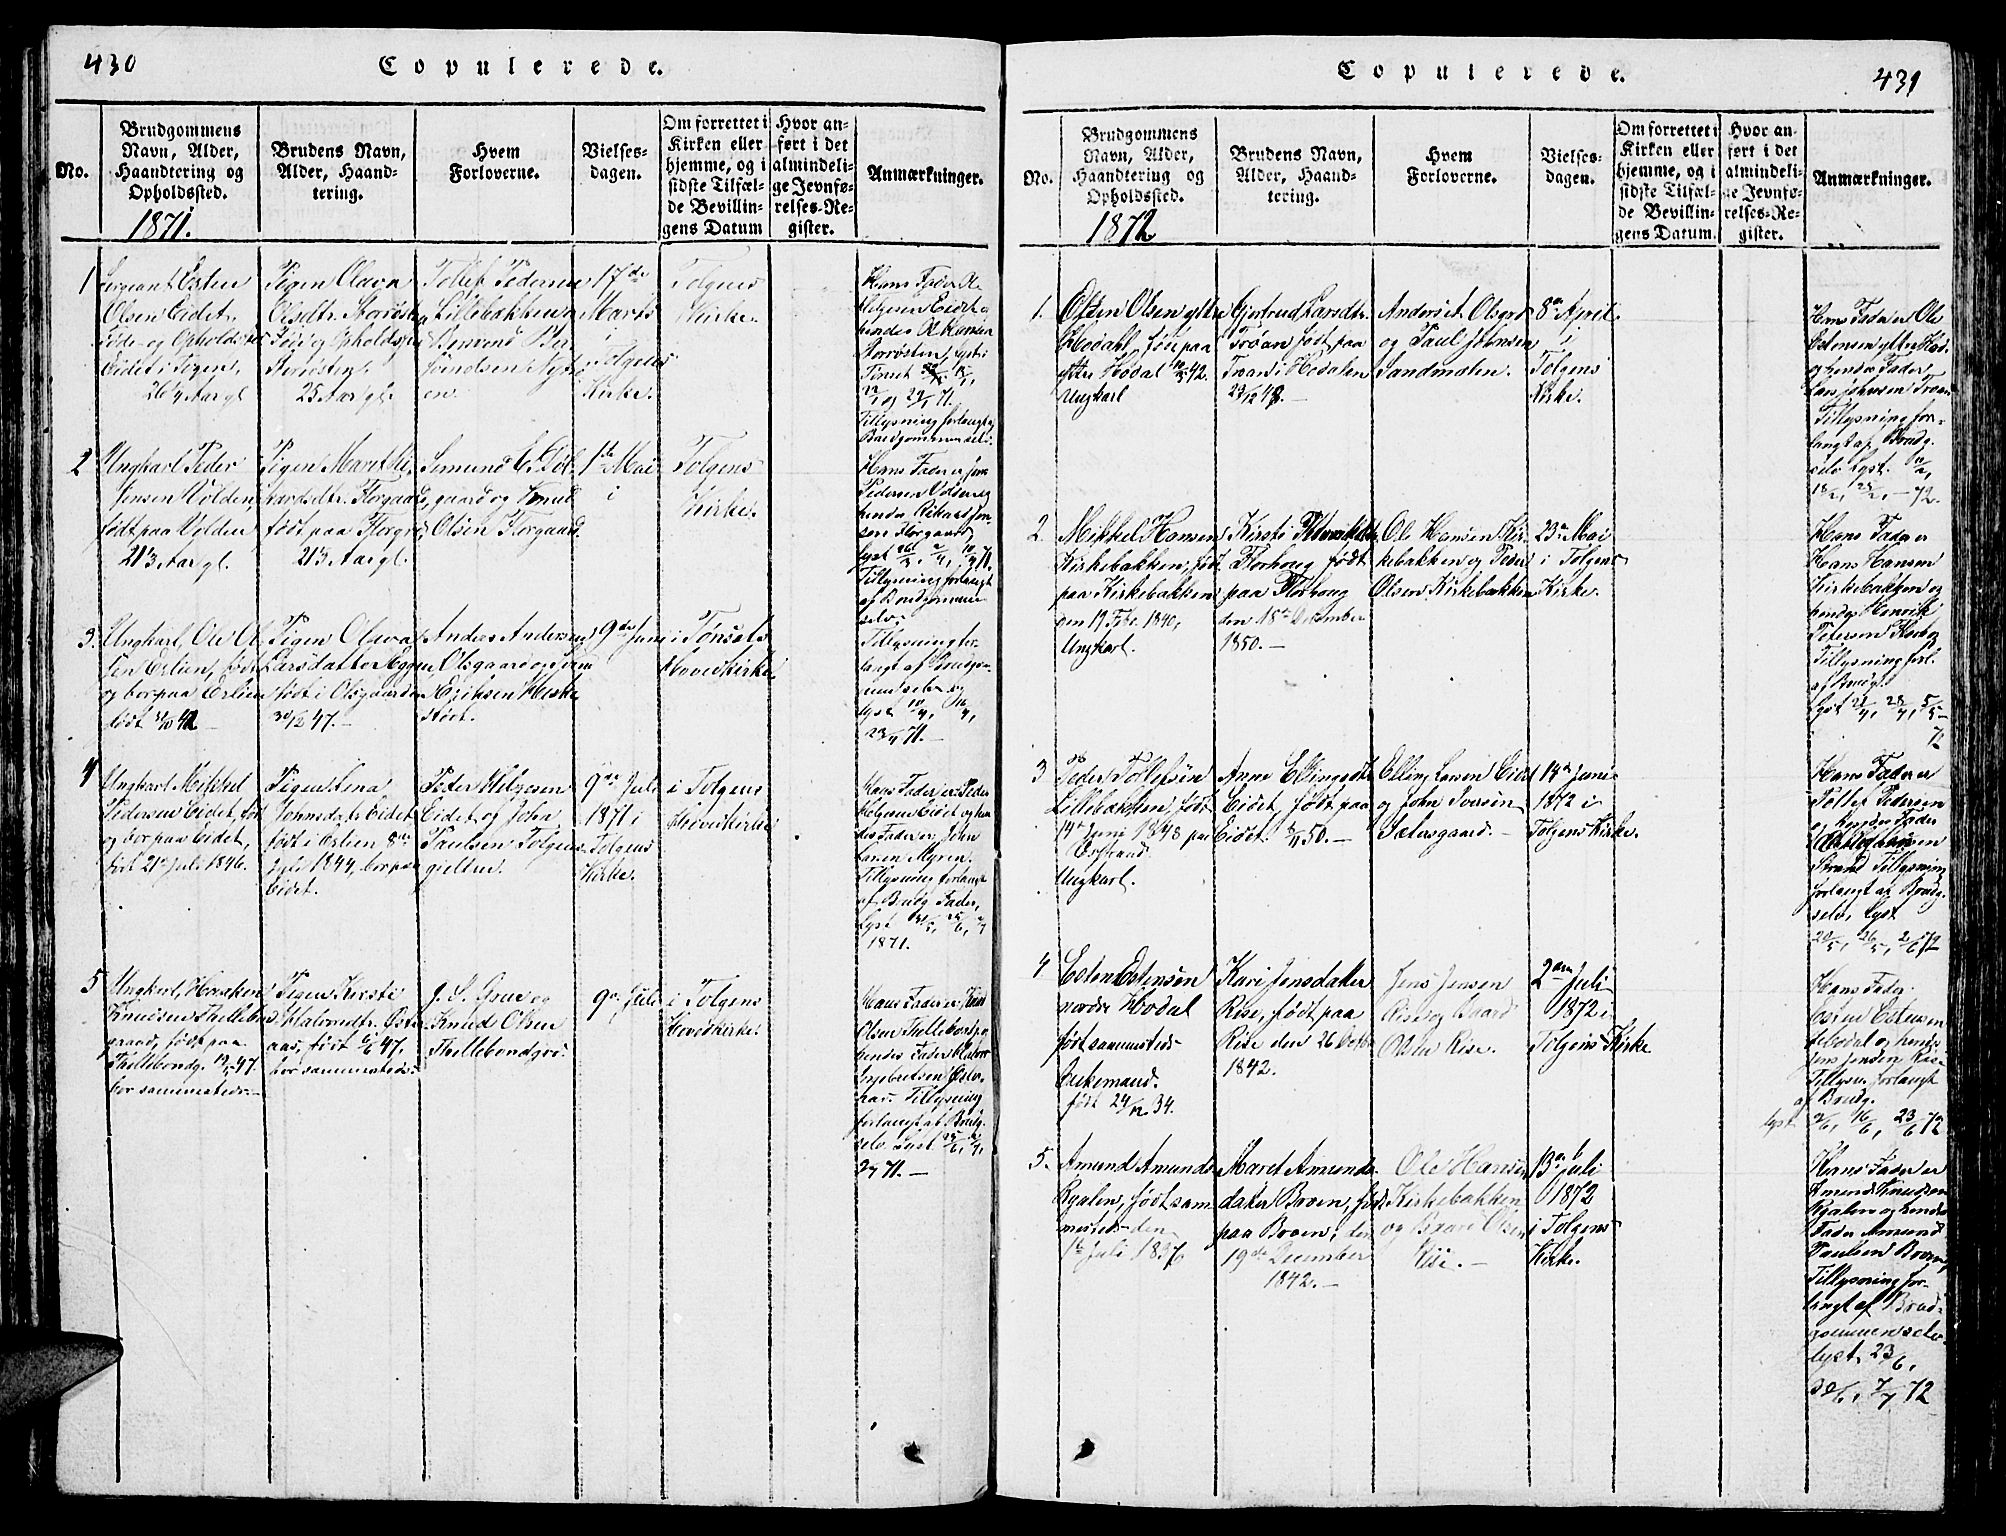 430
Copulerede.
No.
Brudgommens
Navn, Alder,
Haandtering og
Opholdssted.
1871.
Brudens Navn,
Alder, Haand-
tering.
Hvem
Forloverne.
Vielses-
dagen.
Om forrettet i
Kirken eller
hjemme, og i
sidste Tilfæl-
de Bevillin-
gens Datum
Hvor an-
ført i det
almindeli-
ge Jevnfø-
relses-Re-
gister.
Anmærkninger.
1
Sergeant Esten
Olsen Eidet,
Føde- og Opholdssted
Eidet i Tolgen,
26¼ Aar gl
Pigen Olava
Olsdtr. Storøsten
Føde og Opholdssted
Storøsten
25 Aar gl.
Tollef Pedersen
Lillebakken
17de
Marts
i
Tolgens
Kirke.
Tolgens
Kirke.
Tillysning forlangt af
Brudgommen selv.
2
Ungkarl Peder
Jensen Volden,
født paa Volden
21⅓ Aar gl.
Pigen Maret Ri-
kardsdtr. Florgaard,
født paa Florgrd
21⅓ Aar gl.
gaard og Knud
Olsen Florgaard.
1ste Mai
i
Tolgens
Kirke.
Hans Fader er Jens
Pedersen Volden og
hendes Rikard Jen-
sen Florgaard,
Tillysning forlangt
af Brudgommen
selv.
3.
Ungkarl, Ole Ol-
sen Erlien, født
og bor paa Erlien
født 31/10 42
Pigen Olava
Larsdatter Eggen,
født i Olsgaarden
30/6 47.
Anders Andersen
Olsgaard og Svend
Eriksen
9de Juni
i Tønsets
Hovedkirke
Tillysning for-
langt af Brudgo-
mmen selv og
lyst
23/4 71.
4
Ungkarl Mikkel
Pedersen Eidet, født
og bor paa Eidet,
født 21de Juli 1846.
Pigen Lina
Johnsdatr. Eidet
født i Erlien 8de
Juli 1844, bor paa
Eidet.
Peder Helgesen
Eidet, og John
Paulsen Tolgens-
gjelten.
9de Juli
1871 i
Tolgens
Kirke.
i Tolgens
Hovedkirke
Hans Fader er Peder
Helgesen Eidet og hen-
des Fader er John
Larsen Myren.
Tillysning forlangt
af Brudg. Fader,
lyst
1871.
5
Ungkarl, Haaken
Knudsen Thellebon-
gaard, født paa
Thellebondg.
bor sammesteds.
Pigen Kirsti
Halvordtr. Øster-
aas, født 6/6 47,
bor sammesteds.
J. S. Grue og
Knud Olsen
Thellebondgrd.
9de Juli
i Tolgens
Hovedkirke.
Hans Fader er Knud
Olsen Thellebondg. og
hendes Fader Halvor
Ingebretsen Øster-
aas. Tillysning
forlangt af Brudg.
selv. Lyst
2/7 71.
431
Copulerede.
No.
Brudgommens
Navn, Alder,
Haandtering og
Opholdssted.
1872
Brudens Navn,
Alder, Haand-
tering.
Hvem
Forloverne.
Vielses-
dagen.
Om forrettet i
Kirken eller
hjemme, og i
sidste Tilfæl-
de Bevillin-
gens Datum.
Hvor an-
ført i det
almindeli-
ge Jevnfø-
relses-Re-
gister.
Anmærkninger.
1.
Esten Olsen yttre
Hodahl, født paa
yttre Hodal
Ungkarl
Gjertrud Larsdtr.
Troan født paa
Troan i Hodalen
og Paul Johnsen
Sandmælen.
8de April
i
Tolgens
Kirke.
Hans Fader er Ole
Estensen yttre Hod.
og hendes Fader
Lars Johnsen Troan
Tillysning for-
langt af Brudg.
selv. Lyst.
18/2, 25/2, - 72.
2.
Mikkel Hansen
Kirkebakken, født
paa Kirkebakken
den 19 Fbr. 1840,
Ungkarl.
Florhoug født
paa Florhoug
den 18de December
1850.
Ole Hansen Kir-
kebakken og Peder
Olsen Kirkebakken
23de Mai
i Tolgens
Kirke.
Hans Fader er
Hans Hansen
Kirkebakken og
hendes Henrik
Petersen
Tillysning forl.
af Brudg.
Lyst 21/4, 28/4, 5/5
72
3
Peder Tollefsen
Lillebakken, født
14de Juni 1848 paa
Ungkarl.
Anne Ellingsdtr.
Eidet, født paa
Eidet
Elling Larsen Eidet
og John Iversen
Sætersgaard.
14de Juni
1872 i
Tolgens Kirke.
Hans Fader er
Tollef Pedersen
og hendes Fader
Tillysning
forlangt af Brudg.
selv, Lyst
20/5, 26/5, 2/6 72
4
Esten Estensen
nordre Hodal
født sammesteds
Enkemand.
født 24/12 34.
Kari Jensdatter
Rise, født paa
Rise den 26 Octbr
1842.
Jens Jensen
Rise og Baard
Olsen Rise.
2den Juli
1872 i
Tolgens Kirke
Hans Fader
Esten Estensen
Hodal og hendes
Jens Jensen Rise
Tillysn. forlangt
af Brudg.
lyst 9/6, 16/6, 23/6 72
5.
Amund Amunds.
Rgalen, født sam-
mesteds den
1ste Juli 1837
Maret Amunds-
datter Broen, født
paa Broen, den
19de December
1842.
Ole Hansen
Kirkebakken
og Baard Olsen
Rise.
13de Juli
1872
i Tolgens
Kirke.
Hans Fader er
Amund Knudsen
og hendes
Fader Amund
Paulsen Broen,
Tillysning for-
langt af Brud-
gommen selv
lyst. 23/6,
30/6, 7/7 72